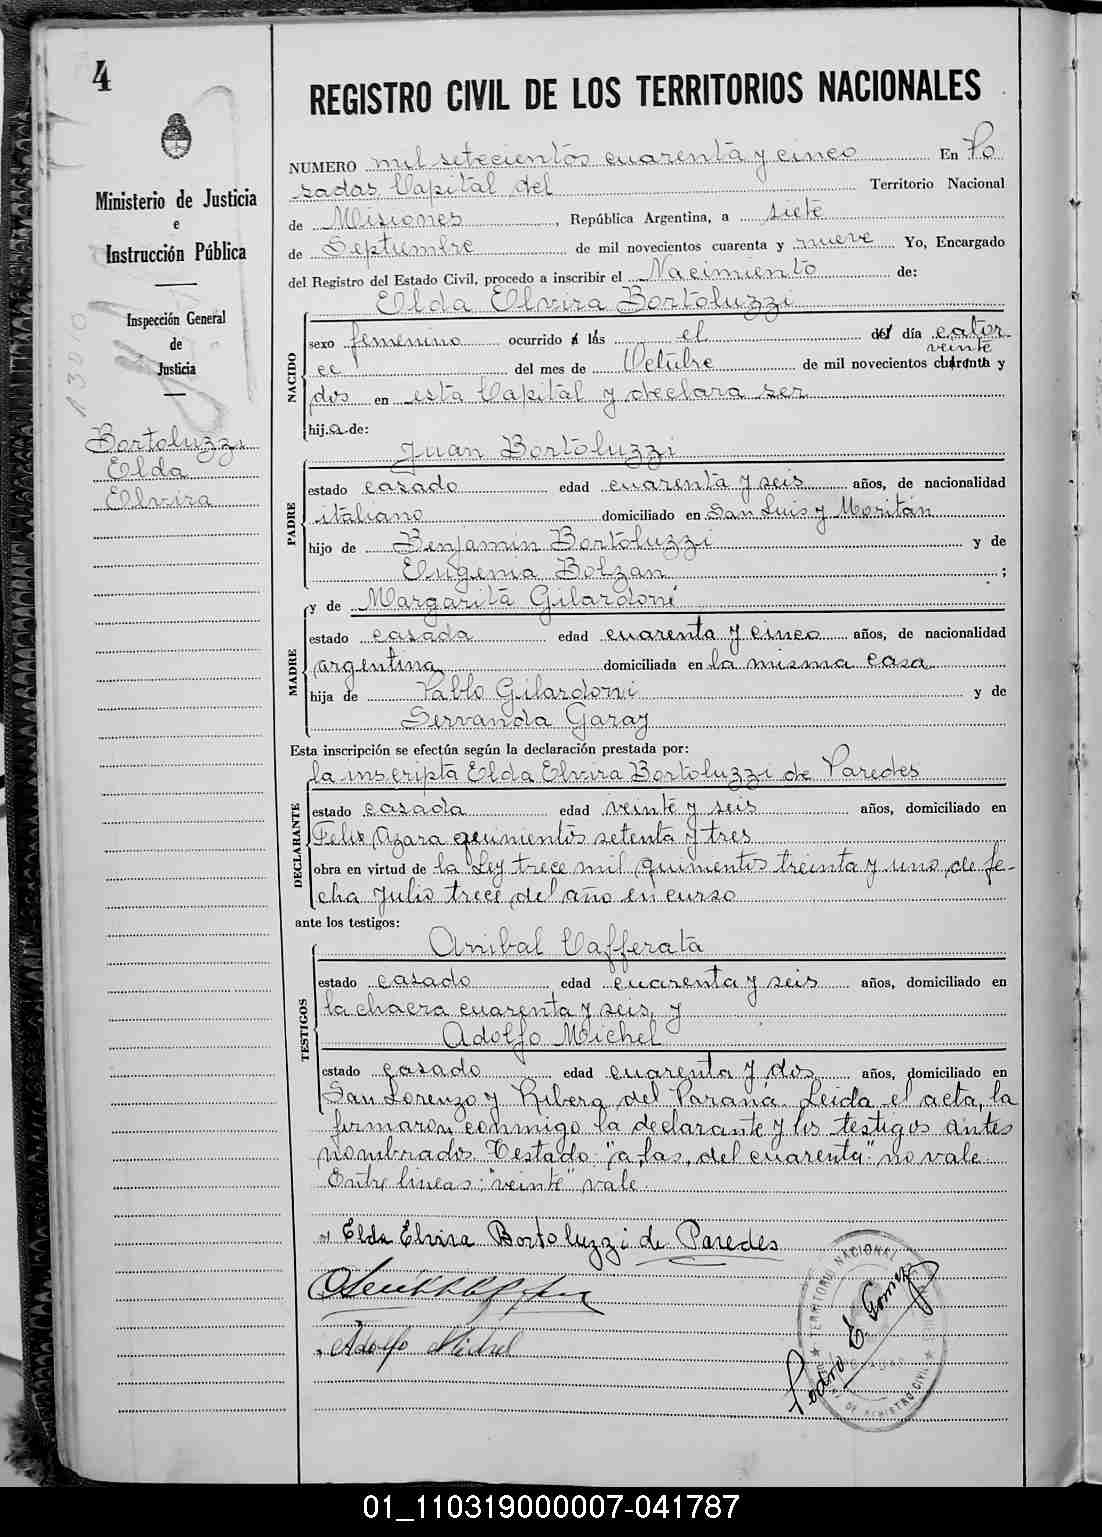 4
REGISTRO CIVIL DE LOS TERRITORIOS NACIONALES
Ministerio de Justicia
e
Instrucción Pública
Inspección General
de
Justicia
Bortoluzzi
Elda
Elvira
NUMERO mil setecientos cuarenta y cinco En Po
sadas, Capital del Territorio Nacional
de Misiones, República Argentina, a siete
de Septiembre de mil novecientos cuarenta y nueve Yo, Encargado
del Registro del Estado Civil, procedo a inscribir el Nacimiento de:
Elda Elvira Bortoluzzi
NACIDO
sexo femenino ocurrido a las el del día cator
veinte
ce del mes de Octubre de mil novecientos cuarenta y
dos en esta Capital y declara ser
hij.a de:
Juan Bortoluzzi
PADRE
estado casado edad cuarenta y seis años, de nacionalidad
italiano domiciliado en San Luis y Moritán
hijo de Benjamin Bortoluzzi y de
Eugenia Bolzan ;
y de Margarita Gilardoni
MADRE
estado casada edad cuarenta y cinco años, de nacionalidad
argentina domiciliada en la misma casa
hija de Pablo Gilardoni y de
Servanda Garay
Esta inscripción se efectúa según la declaración prestada por:
la inscripta Elda Elvira Bortoluzzi de Paredes
DECLARANTE
estado casada edad veinte y seis años, domiciliado en
Felix Azara quinientos setenta y tres
obra en virtud de la Ley trece mil quinientos treinta y uno de fe-
cha Julio trece del año en curso
ante los testigos:
Anibal Cafferata
TESTIGOS
estado casado edad cuarenta y seis años, domiciliado en
la chacra cuarenta y seis, y
Adolfo Michel
estado casado edad cuarenta y dos años, domiciliado en
San Lorenzo y Ribera del Paraná Leida el acta, la
firmaron conmigo la declarante y los testigos antes
nombrados. Testado: "a, las, del cuarenta" no vale
Entre lineas: "veinte" vale.
Elda Elvira Bortoluzzi de Paredes
Adolfo Michel
Pedro E. Gomez
TERRITORIO NACIONAL
DE REGISTRO CIVIL
01_110319000007-041787